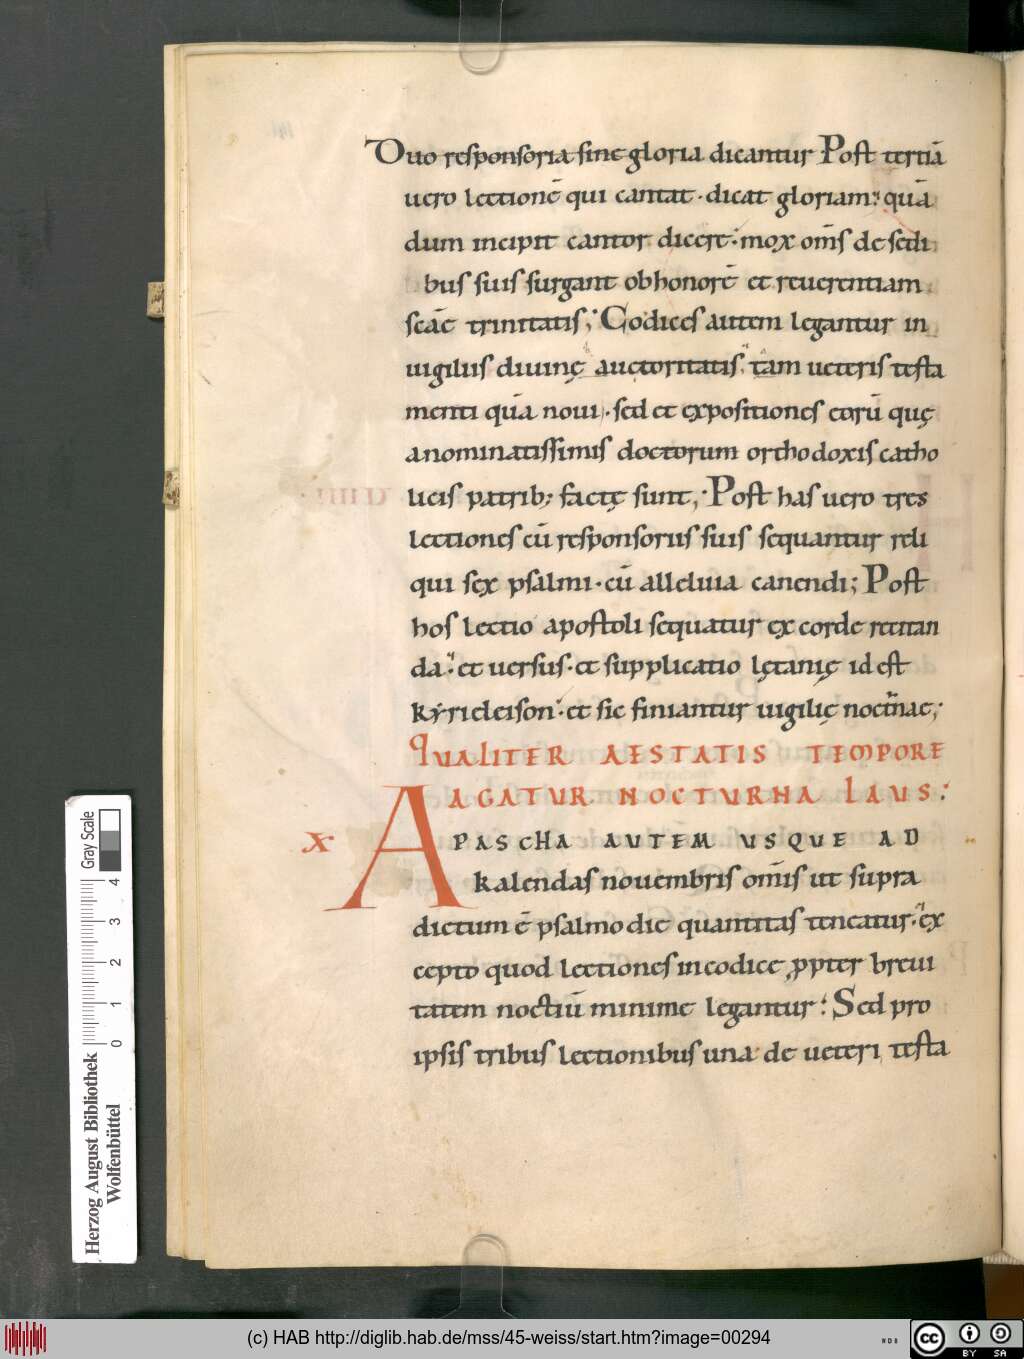 Duo responsoria sine gloria dicantur Post tertiā
uero lectionē qui cantat · dicat gloriam; quā
dum incipit cantor dicere · mox om̄s de sedi
bus suis surgant ob honorē et reuerentiam
sc̄ae trinitatis; Codices autem legantur in
uigiliis diuinę auctoritatis, tam ueteris testa
menti quā noui · sed et expositiones eorū quę
a nominatissimis doctorum orthodoxis catho
licis patrib; factę sunt; Post has uero tres
lectiones cū responsoriis suis sequantur reli
qui sex psalmi · cū alleluia canendi; Post
hos lectio apostoli sequatur ex corde recitan
da · et uersus · et supplicatio lętanię id est
kyrieleison · et sic finiantur uigilię noct̄nae;
QUALITER AESTATIS TEMPORE
AGATUR NOCTURNA LAUS:
X A PASCHA AUTEM USQUE AD
kalendas nouembris om̄is ut supra
dictum ē psalmodie quantitas teneatur · ex
cepto quod lectiones in codice ꝓpter breui
tatem noctiū minime legantur; Sed pro
ipsis tribus lectionibus una de ueteri testa
Gray Scale
0 1 2 3 4
Herzog August Bibliothek
Wolfenbüttel
(c) HAB http://diglib.hab.de/mss/45-weiss/start.htm?image=00294
WDB
cc BY SA